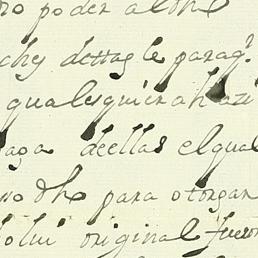 no poder a dho
ches dettas le parag.
qualesquier ahazi
aga deellas elqual
no dho para otorgar
original fueron